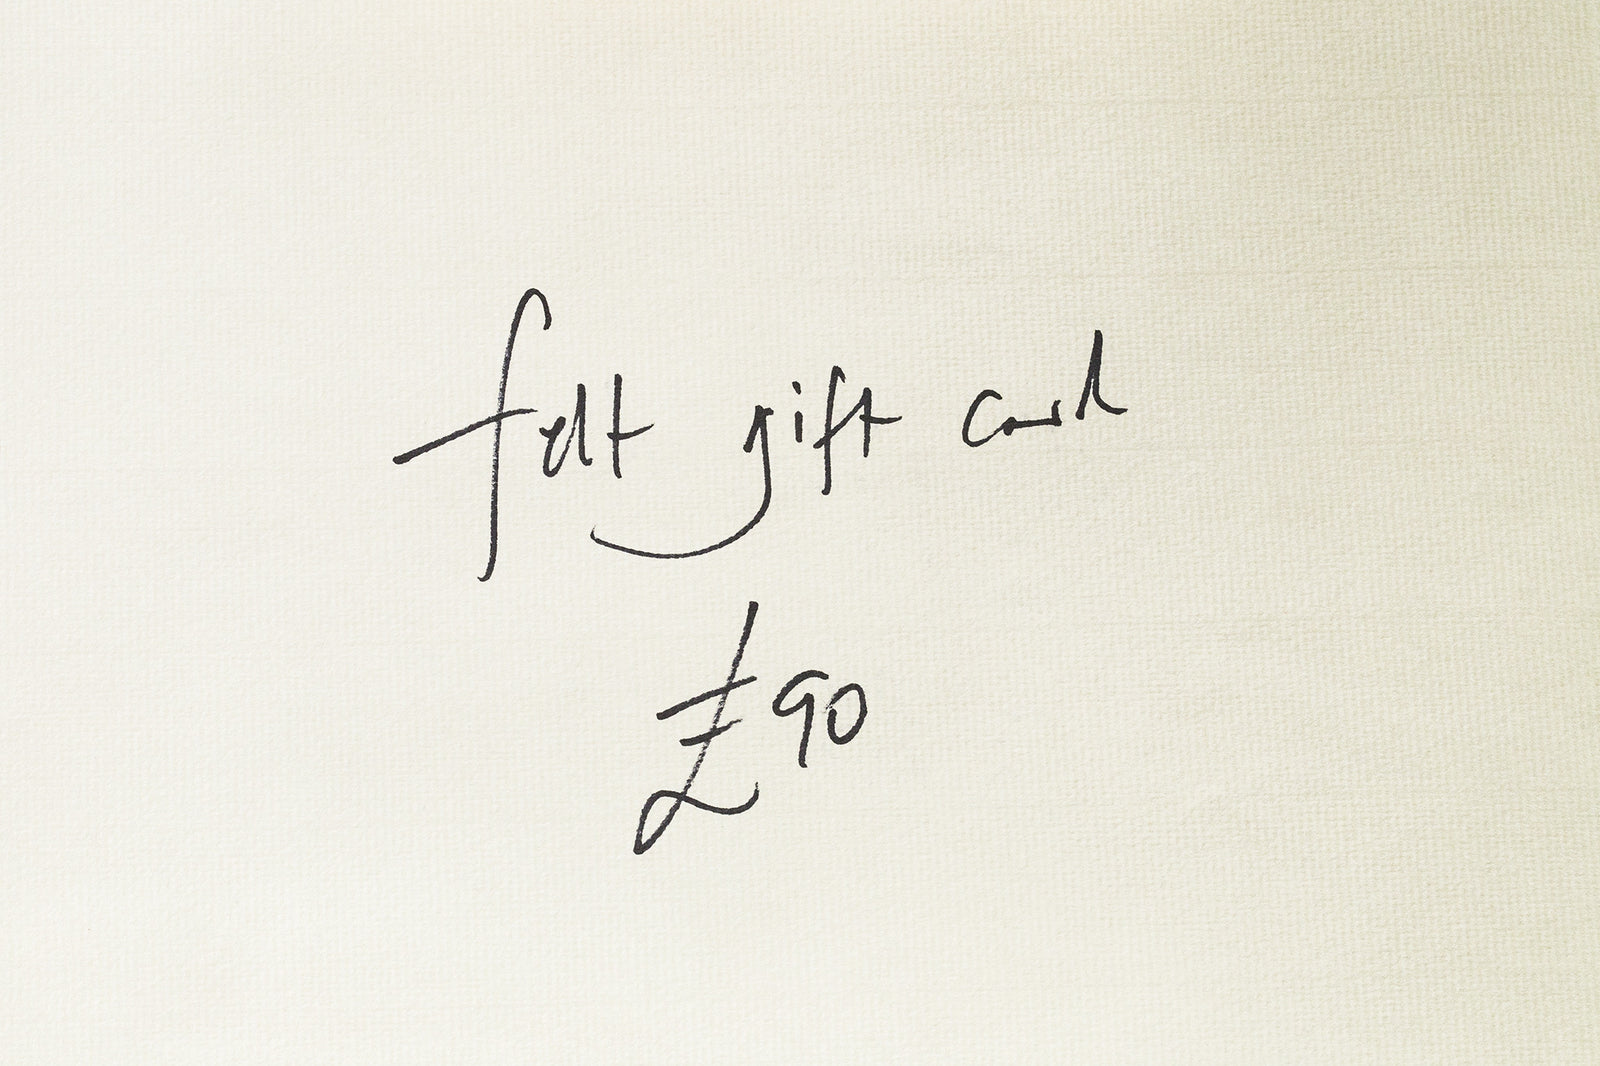 felt gift card
£90